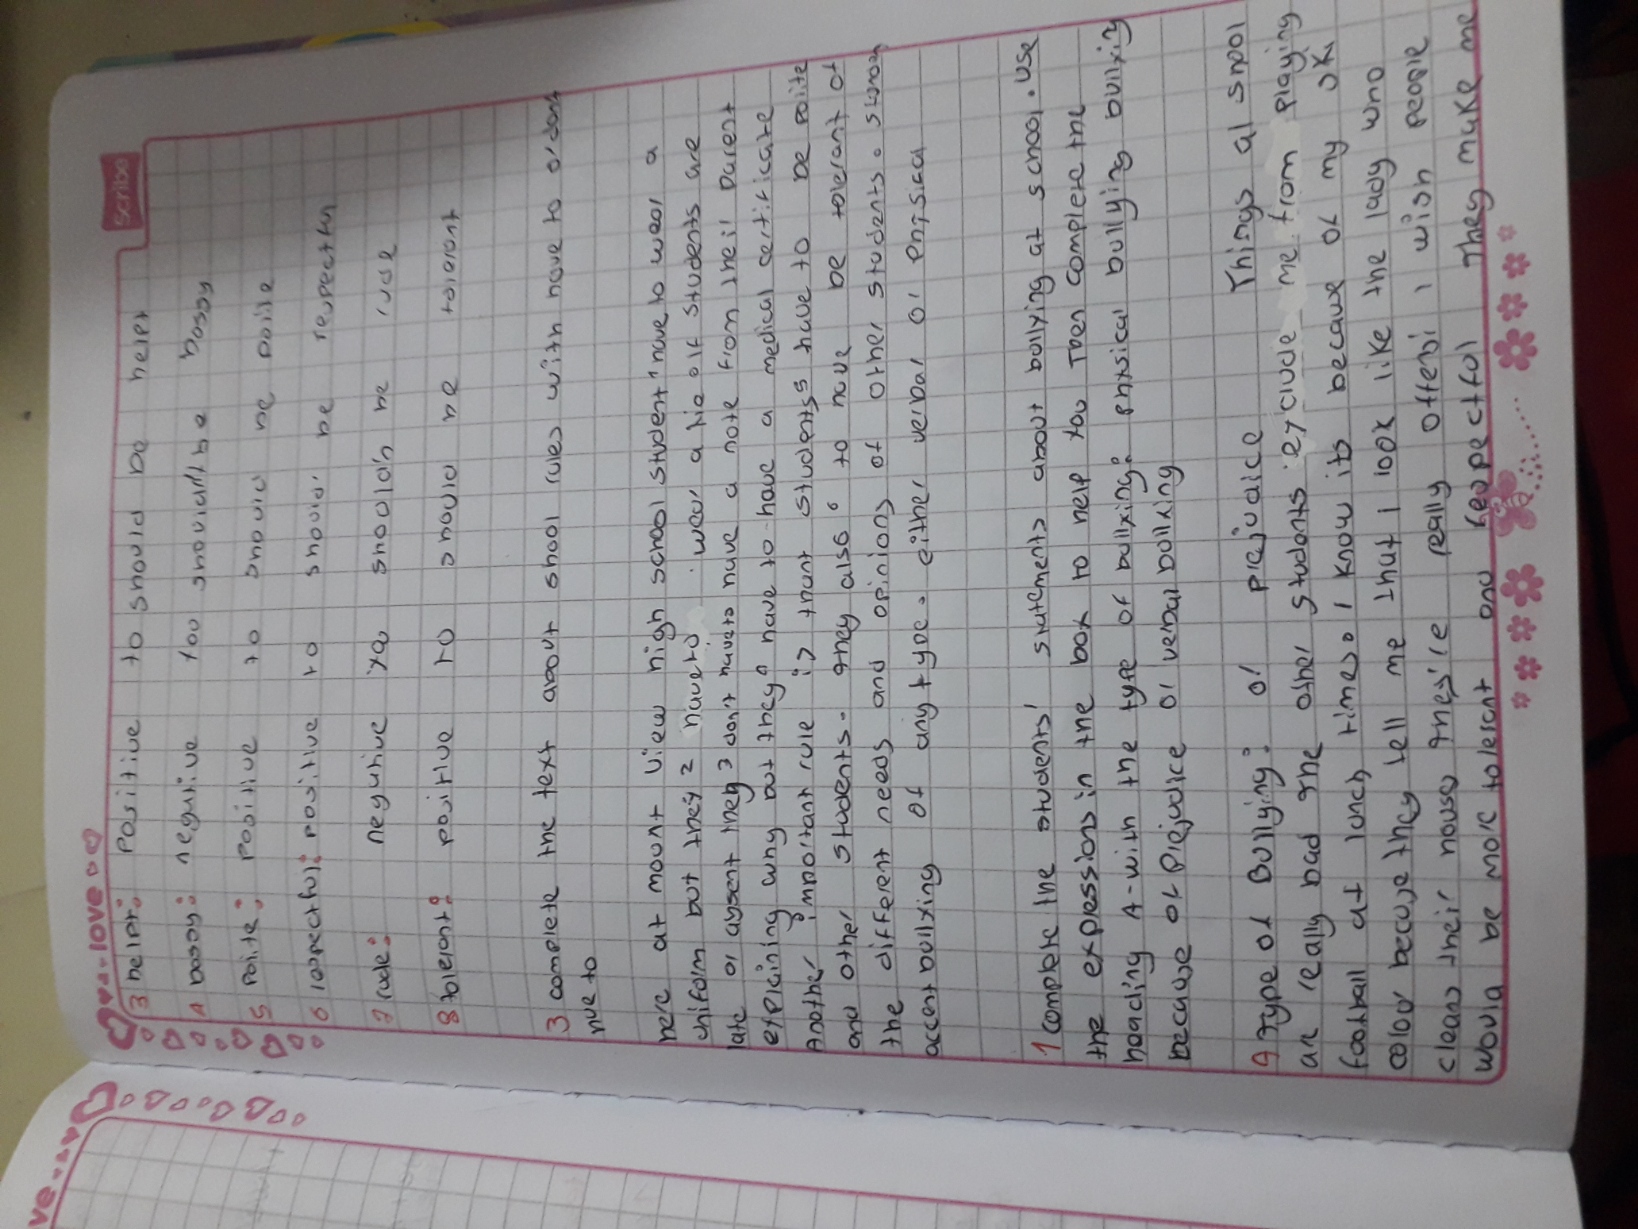 love
Scribe
3 helpt: Positive to should be helpt
4 bossy: negative You should be bossy
5 polite: positive to should be polite
6 respectful: positive to should be respectful
7 rude: negative You shouldn be rude
8 tolerant: positive to should be tolerant
3 complete the text about shool rules with have to or dont
have to
here at mount View high school student¹ have to wear a
uniform but they 2 have to wear a tie . If students are
late or absent they 3 don't have to have a note from their parent
explaining why but they⁴ have to have a medical certificate
Another important rule is thant students⁵ have to be polite
and other students. they also 6 to have be tolerant of
the different needs and opinions of other students. shmon
accent bullxing of any type. either verbal or phisical
1 complete the students' statements about bullying at school. use
the expressions in the box to help you Then complete the
heading A-with the type of bullxing? phxsical bullying bullxing
because of Prejudice or verbal bullxing
A Type of Bullying: or prejudice Things al shool
are really bad The other students exclude me from playing
football at lunch times. I know its because of my skx
color because they tell me that I look like the lady who
cleans their house they're really offensi I wish people
would be more tolerant and respectful They make me
ve